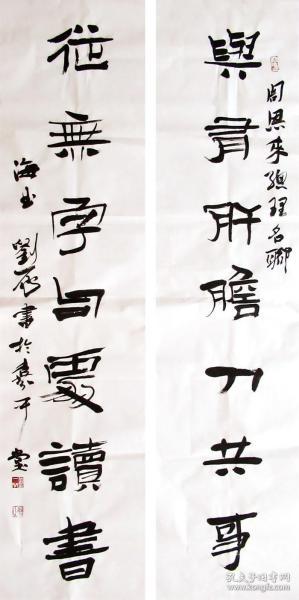 與有肝膽人共事
周恩來總理名聯
從無字句處讀書
海上劉
書於
孔夫子旧书网